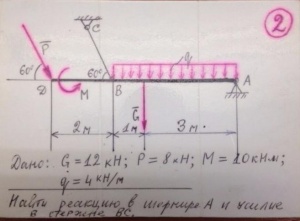 2
P̄
C
q
60°
60°
D
M
B
Ḡ
A
2 м
1 м
3 м.
Дано: G = 12 кН; P = 8 кН; M = 10 кНм;
q = 4 кН/м
Найти реакцию в шарнире A и усилие
в стержне BC.